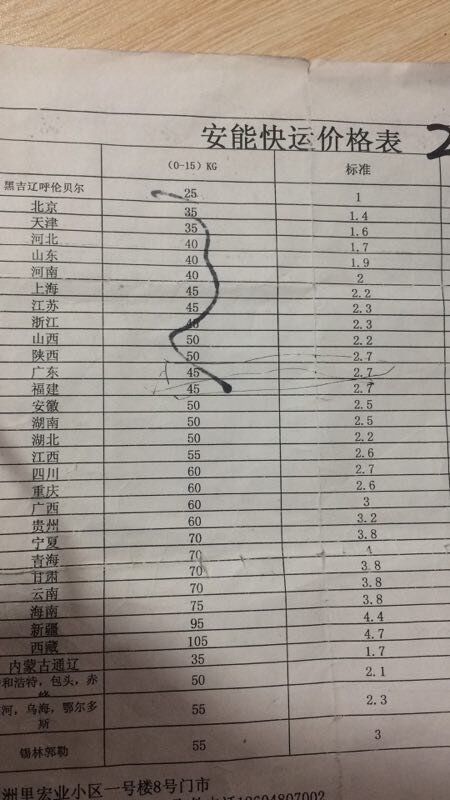 安能快运价格表 2
(0-15)KG 标准
黑吉辽呼伦贝尔 25 1
北京 35 1.4
天津 35 1.6
河北 40 1.7
山东 40 1.9
河南 40 2
上海 45 2.2
江苏 45 2.3
浙江 45 2.3
山西 50 2.2
陕西 50 2.7
广东 45 2.7
福建 45 2.7
安徽 50 2.5
湖南 50 2.5
湖北 50 2.2
江西 55 2.6
四川 60 2.7
重庆 60 2.6
广西 60 3
贵州 60 3.2
宁夏 70 3.8
青海 70 4
甘肃 70 3.8
云南 70 3.8
海南 75 3.8
新疆 95 4.4
西藏 105 4.7
内蒙古通辽 35 1.7
和浩特，包头，赤 50 2.1
峰
河，乌海，鄂尔多 55 2.3
斯
锡林郭勒 55 3
洲里宏业小区一号楼8号门市